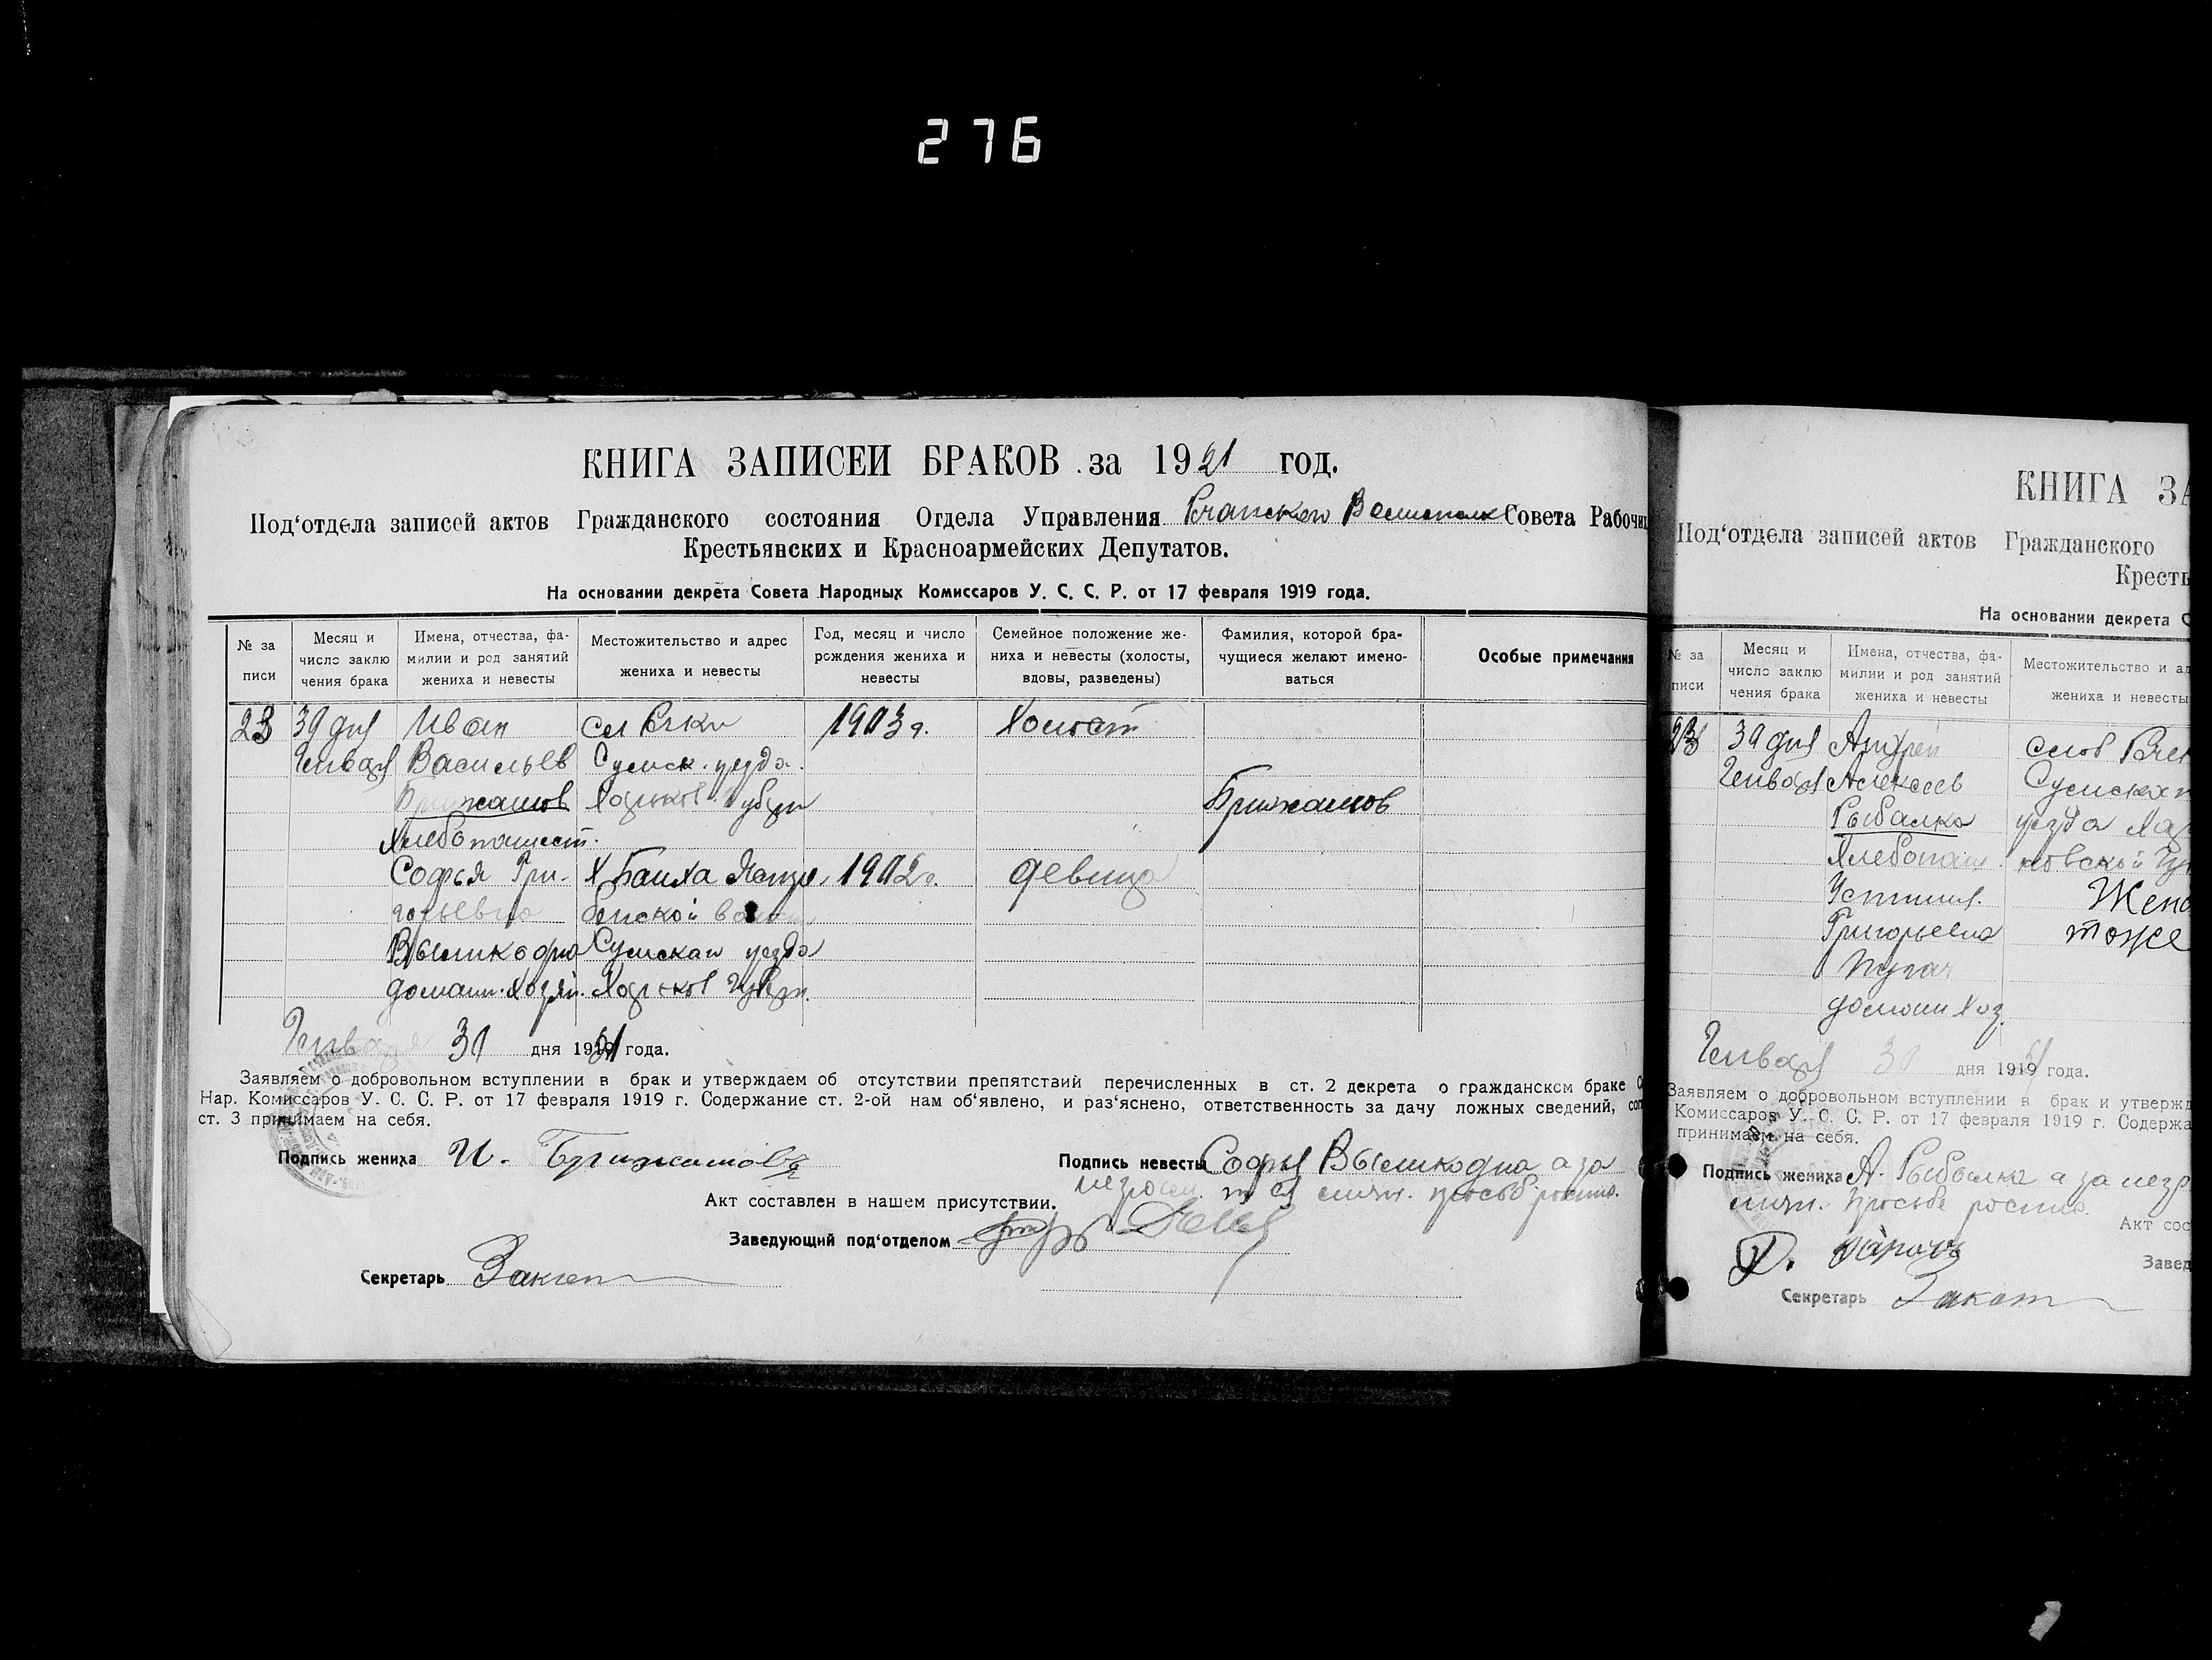 276
КНИГА ЗАПИСЕЙ БРАКОВ за 1921 год.
Под‘отдела записей актов Гражданского состояния Отдела Управления Совета Рабочих
Крестьянских и Красноармейских Депутатов.
На основании декрета Совета Народных Комиссаров У. С. С. Р. от 17 февраля 1919 года.
№ за писи
Месяц и число заклю чения брака
Имена, отчества, фа- милии и род занятий жениха и невесты
Местожительство и адрес жениха и невесты
Год, месяц и число рождения жениха и невесты
Семейное положение же- ниха и невесты (холосты, вдовы, разведены)
Фамилия, которой бра- чущиеся желают имено- ваться
Особые примечания
23 30 дня Иван сел 1903 г. Холост
Генваря Васильев Сумск. уезда.
Харьков. Губерн
Хлебопашест.
Софья Гри- х 1902 г. девица
горьевна
Сумскаго уезда
домаш. хозяй. Харьков Губерн.
Генваря 30 дня 1921 года.
Заявляем о добровольном вступлении в брак и утверждаем об отсутствии препятствий перечисленных в ст. 2 декрета о гражданском браке
Нар. Комиссаров У. С. С. Р. от 17 февраля 1919 г. Содержание ст. 2-ой нам об‘явлено, и раз‘яснено, ответственность за дачу ложных сведений,
ст. 3 принимаем на себя.
Подпись жениха И.
Подпись невесты а за
Акт составлен в нашем присутствии.
негром. личн. просьб
Заведующий под‘отделом
Секретарь
КНИГА ЗА
Под‘отдела записей актов Гражданского
Кресть
На основании декрета С
№ за писи
Месяц и число заклю чения брака
Имена, отчества, фа- милии и род занятий жениха и невесты
Местожительство и ад жениха и невесты
30 дня Андрей слоб
Генваря Алексеев Сумскаго
Рыбалка уезда Хар
Хлебопаш. ковской Гу
Устин. Жена
Григорьевна тоже
Пугач
домаш хоз.
Генваря 30 дня 1921 года.
Заявляем о добровольном вступлении в брак и утвержд
Комиссаров У. С. С. Р. от 17 февраля 1919 г. Содержа
принимаем на себя.
Подпись жениха А. Рыбалка а за негр
личн. просьбе
Акт сос
Завед
Секретарь